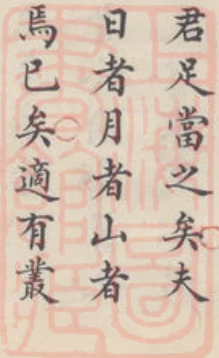 君足當之矣夫
日者月者山者
焉已矣適有叢